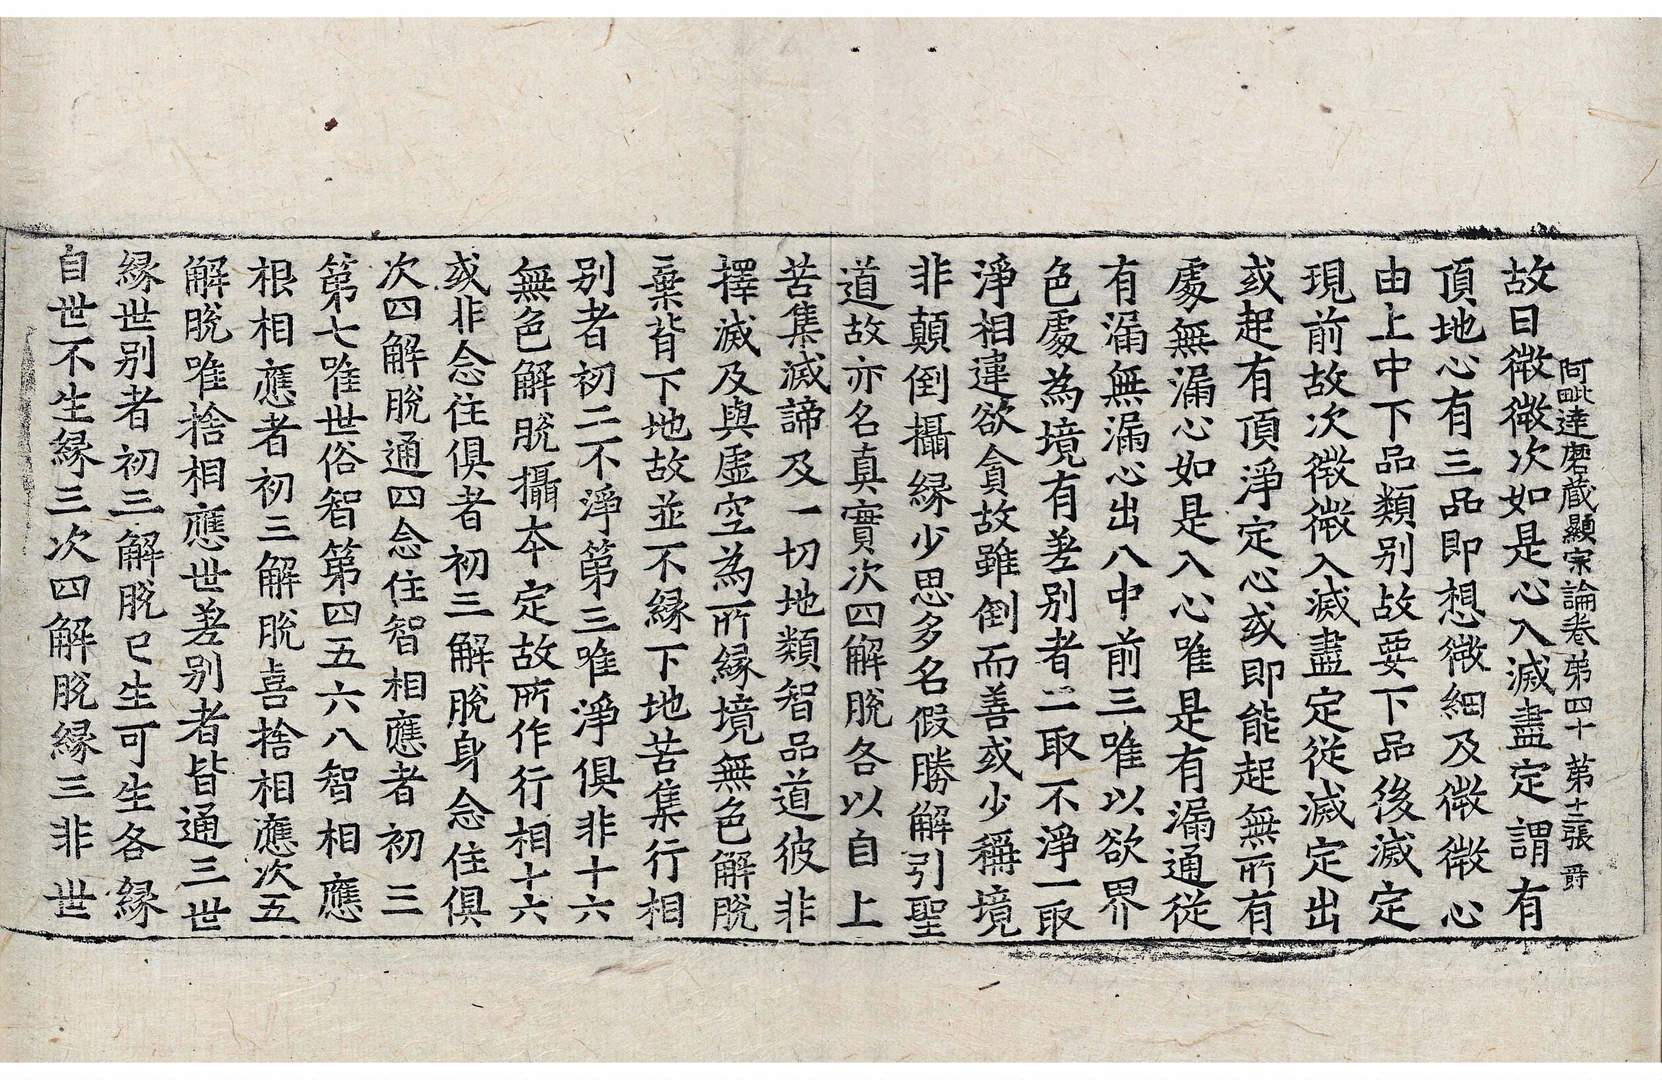 阿毗達磨蔵顯宗論卷第四十 第十二張 爵
故曰微微次如是心入滅盡定謂有
頂地心有三品即想微細及微微心
由上中下品類別故要下品後滅定
現前故次微微入滅盡定從滅定出
或起有頂淨定心或即能起無所有
處無漏心如是入心唯是有漏通從
有漏無漏心出八中前三唯以欲界
色處為境有差別者二取不淨一取
淨相違欲貪故雖倒而善或少稱境
非顛倒攝緣少思多名假勝解引聖
道故亦名真實次四解脫各以自上
苦集滅諦及一切地類智品道彼非
擇滅及與虛空為所緣境無色解脫
棄背下地故並不緣下地苦集行相
別者初二不淨第三唯淨俱非十六
無色解脫攝本定故所作行相十六
或非念住俱者初三解脫身念住俱
次四解脫通四念住智相應者初三
第七唯世俗智第四五六八智相應
根相應者初三解脫喜捨相應次五
解脫唯捨相應世差別者皆通三世
緣世別者初三解脫已生可生各緣
自世不生緣三次四解脫緣三非世